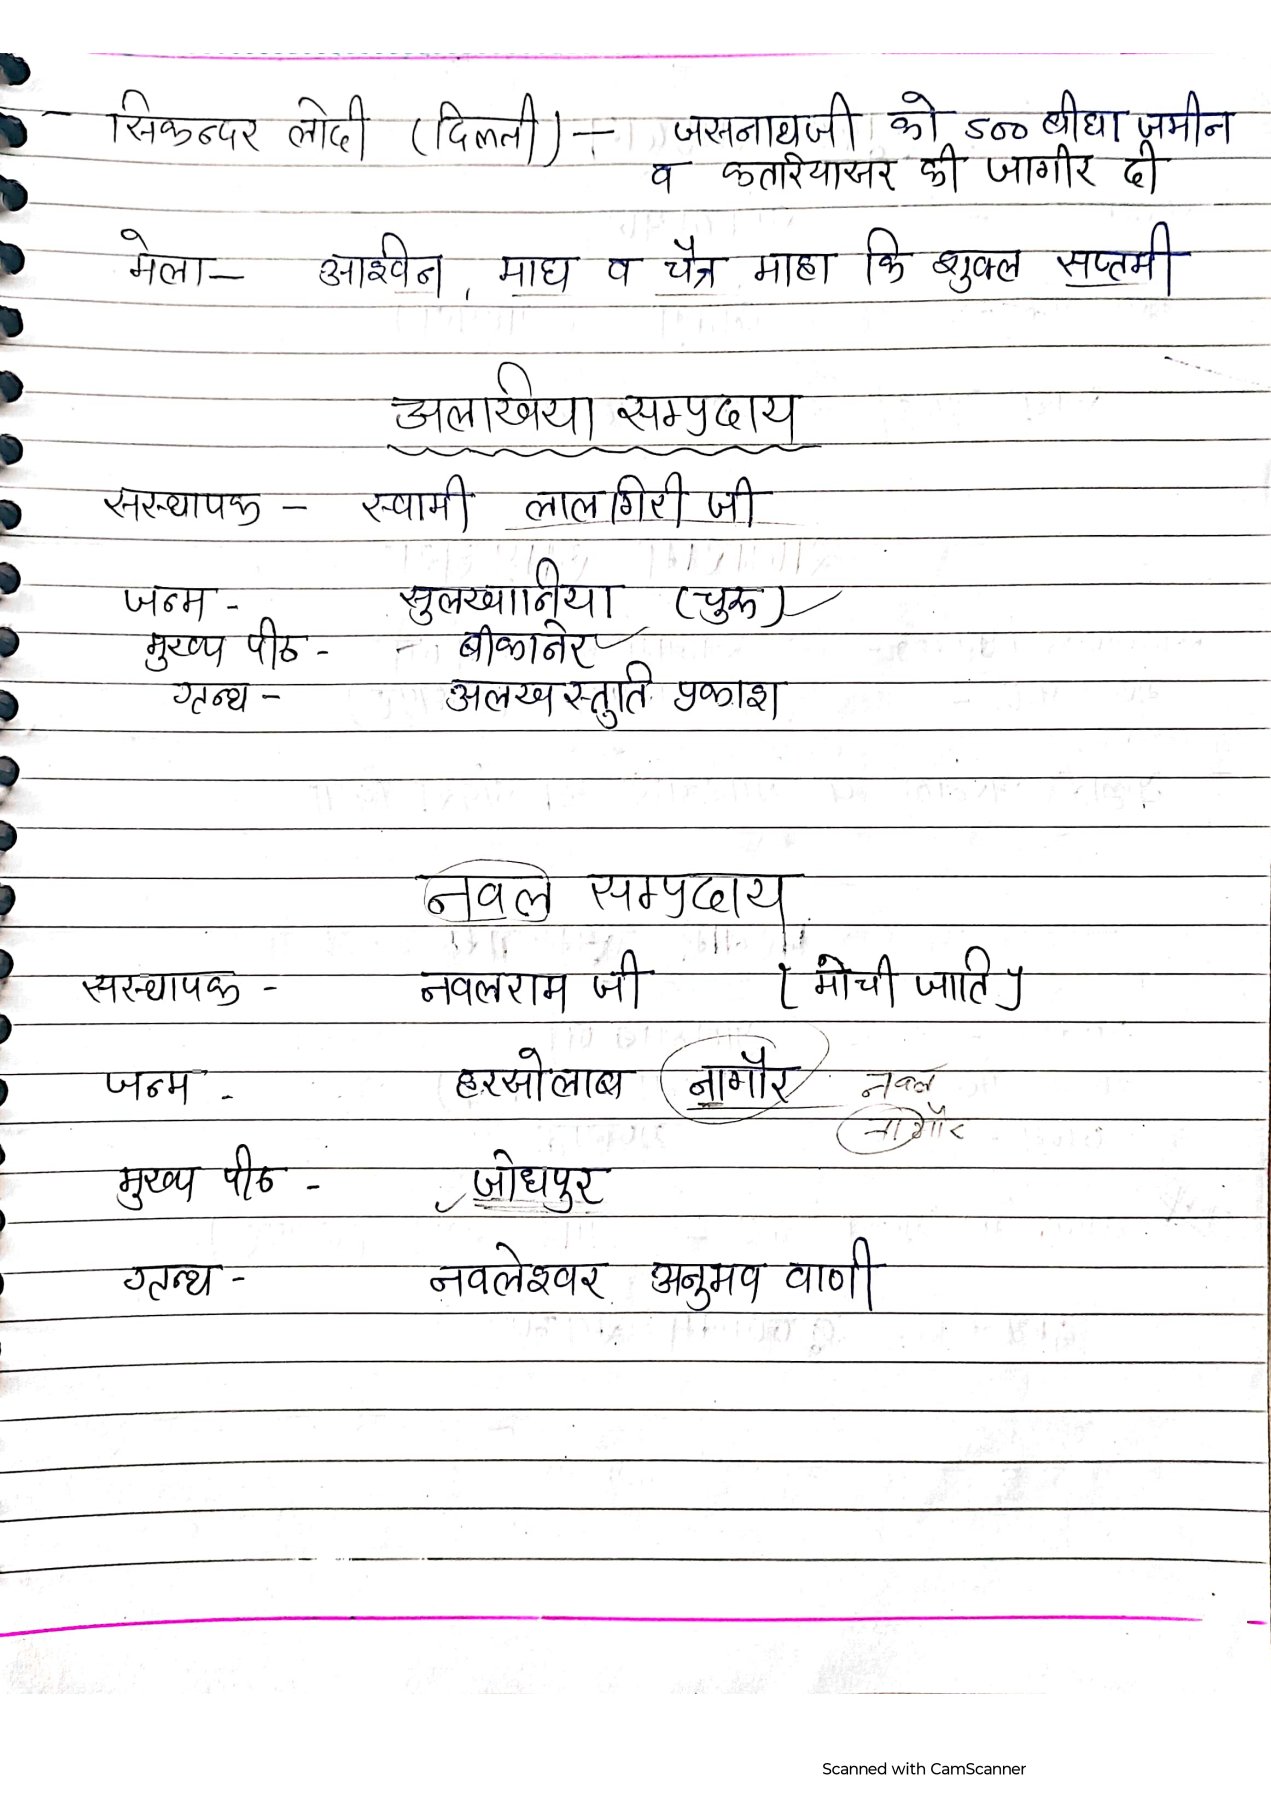 सिकन्दर लोदी (दिल्ली) - जसनाथजी को 500 बीघा ज़मीन
व कतरियासर की जागीर दी
मेला - आश्विन, माघ व चैत्र माहा कि शुक्ल सप्तमी
अलखिया सम्प्रदाय
सस्थापक - स्वामी लालगिरी जी
जन्म - सुलखानिया (चुरू)
मुख्य पीठ - - बीकानेर
ग्रन्थ - अलख स्तुति प्रकाश
नवल सम्प्रदाय
सस्थापक - नवलराम जी [मोची जाति]
जन्म - हरसोलाव नागौर नवल
नागौर
मुख्य पीठ - जोधपुर
ग्रन्थ - नवलेश्वर अनुभव वाणी
Scanned with CamScanner